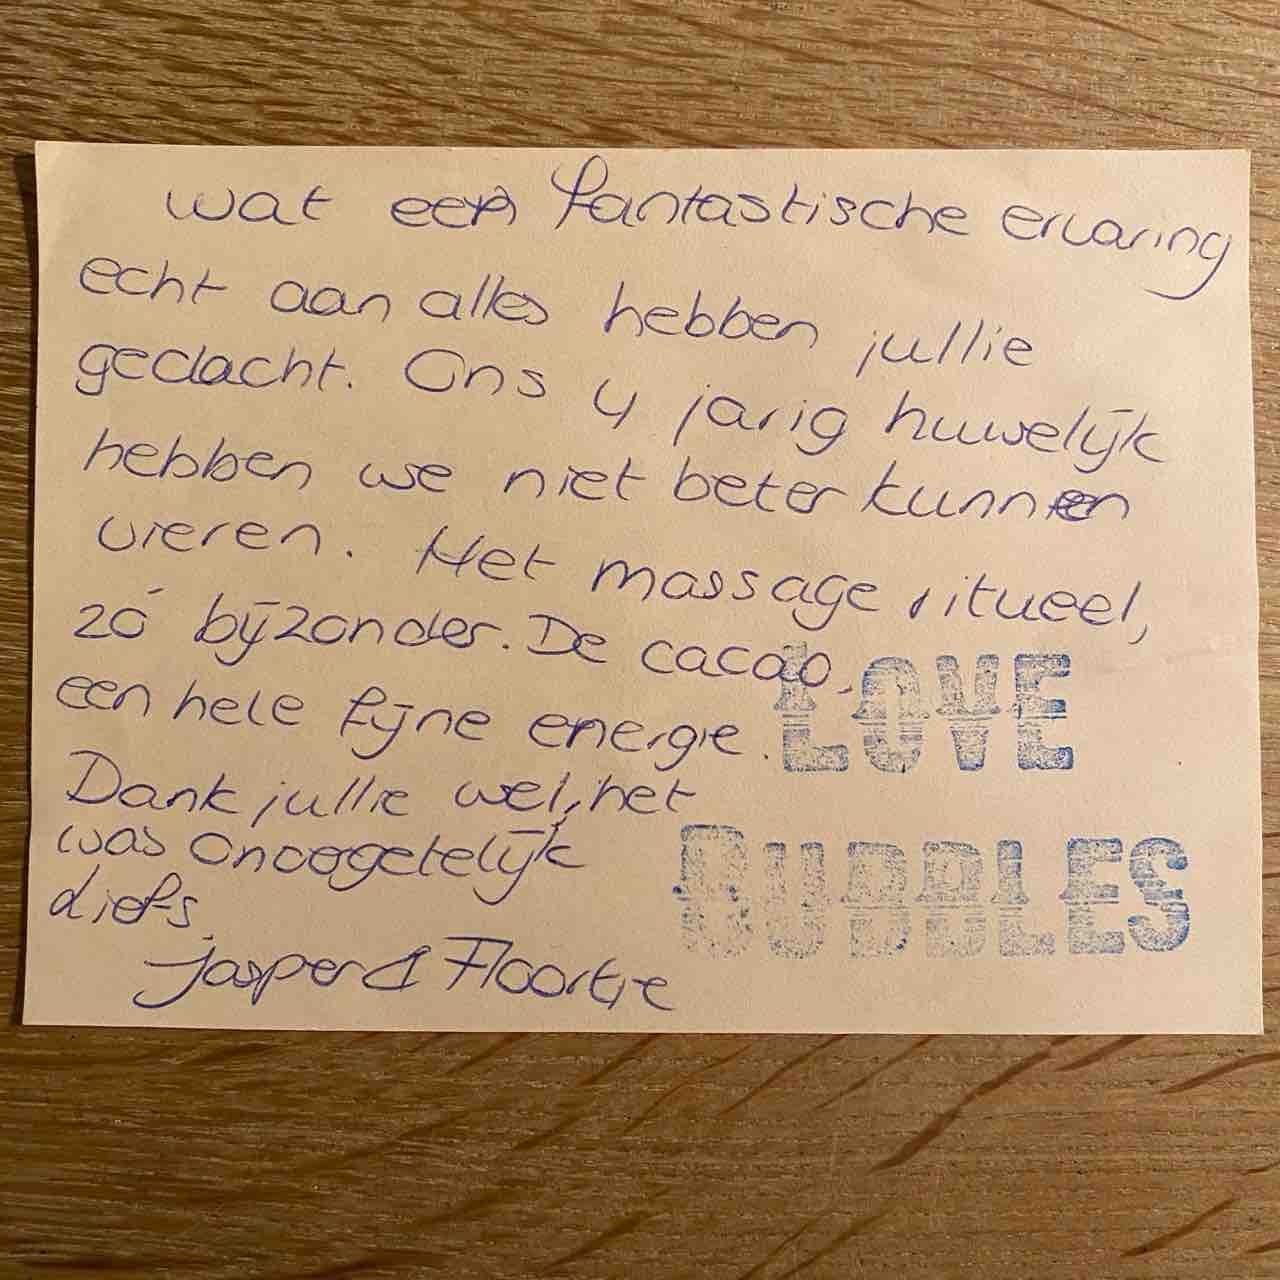 wat een fantastische ervaring
echt aan alles hebben jullie
gedacht. Ons 4 jarig huwelijk
hebben we niet beter kunnen
vieren. Het massage ritueel,
zó bijzonder. De cacao,
een hele fijne energie.
LOVE
Dank jullie wel, het
was onvergetelijk
BUBBLES
liefs
Jasper & Floortje